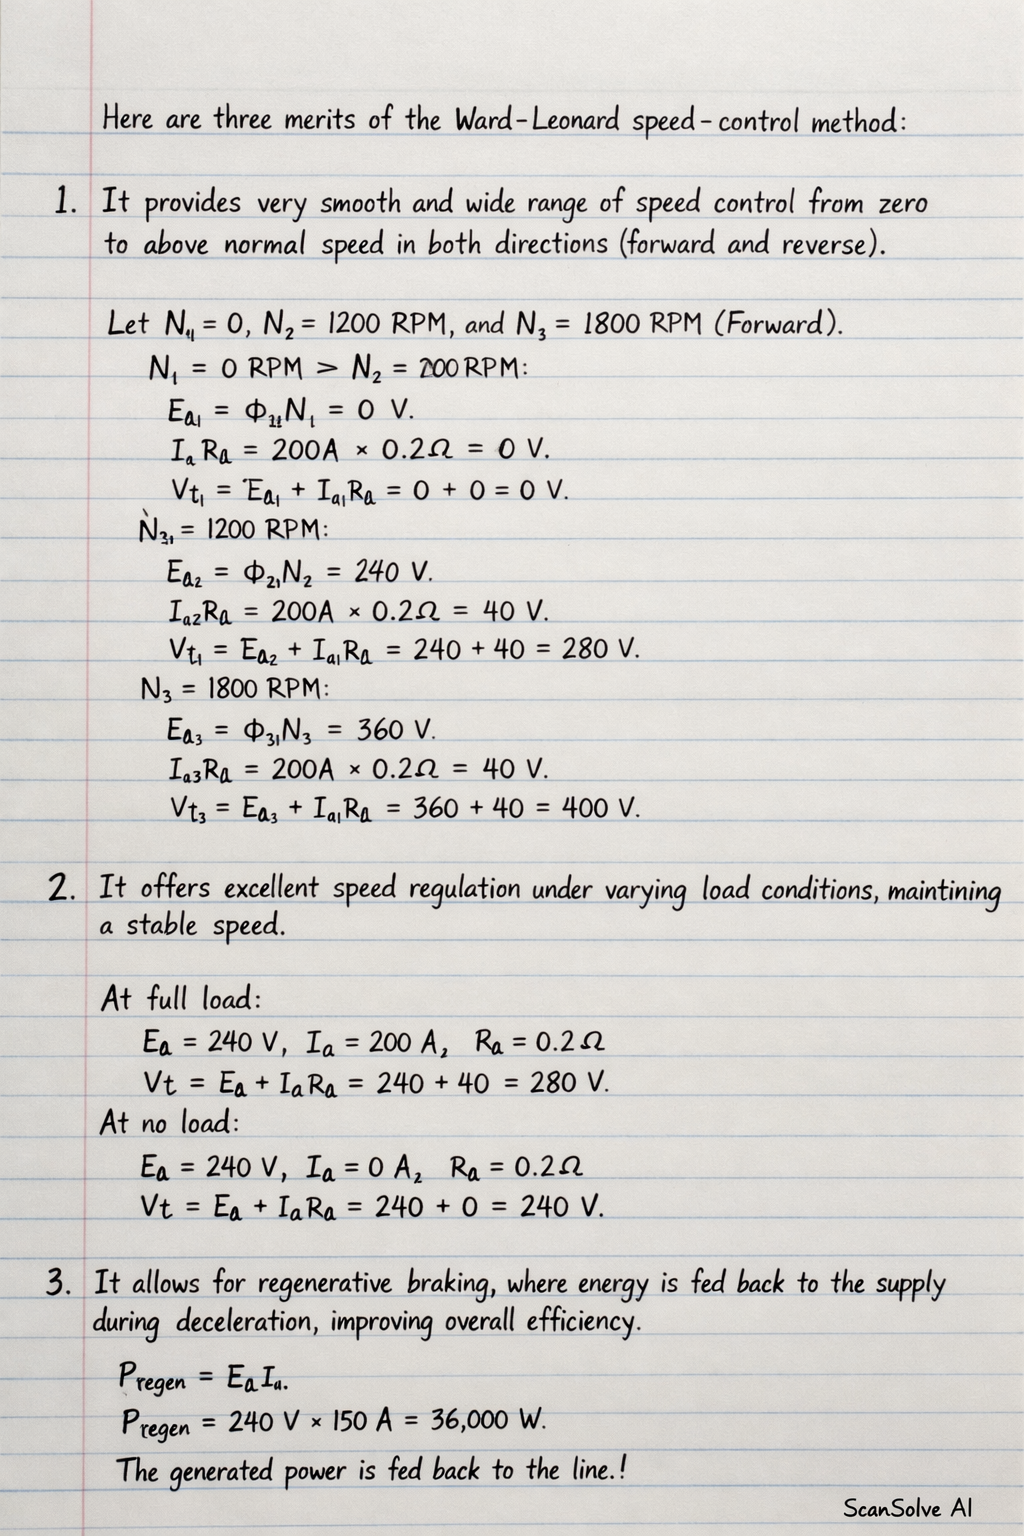 Here are three merits of the Ward-Leonard speed-control method:
1. It provides very smooth and wide range of speed control from zero
to above normal speed in both directions (forward and reverse).
Let N₄ = 0, N₂ = 1200 RPM, and N₃ = 1800 RPM (Forward).
N₁ = 0 RPM > N₂ = 200 RPM:
Ea₁ = Φ₁₁N₁ = 0 V.
IₐRa = 200A × 0.2Ω = 0 V.
Vt₁ = Ea₁ + Iₐ₁Ra = 0 + 0 = 0 V.
N₃₁ = 1200 RPM:
Ea₂ = Φ₂₁N₂ = 240 V.
Iₐ₂Ra = 200A × 0.2Ω = 40 V.
Vt₁ = Ea₂ + Iₐ₁Ra = 240 + 40 = 280 V.
N₃ = 1800 RPM:
Ea₃ = Φ₃₁N₃ = 360 V.
Iₐ₃Ra = 200A × 0.2Ω = 40 V.
Vt₃ = Ea₃ + Iₐ₁Ra = 360 + 40 = 400 V.
2. It offers excellent speed regulation under varying load conditions, maintining
a stable speed.
At full load:
Ea = 240 V, Ia = 200 A, Ra = 0.2Ω
Vt = Ea + IaRa = 240 + 40 = 280 V.
At no load:
Ea = 240 V, Ia = 0 A, Ra = 0.2Ω
Vt = Ea + IaRa = 240 + 0 = 240 V.
3. It allows for regenerative braking, where energy is fed back to the supply
during deceleration, improving overall efficiency.
Pregen = EaIa.
Pregen = 240 V × 150 A = 36,000 W.
The generated power is fed back to the line.!
ScanSolve AI